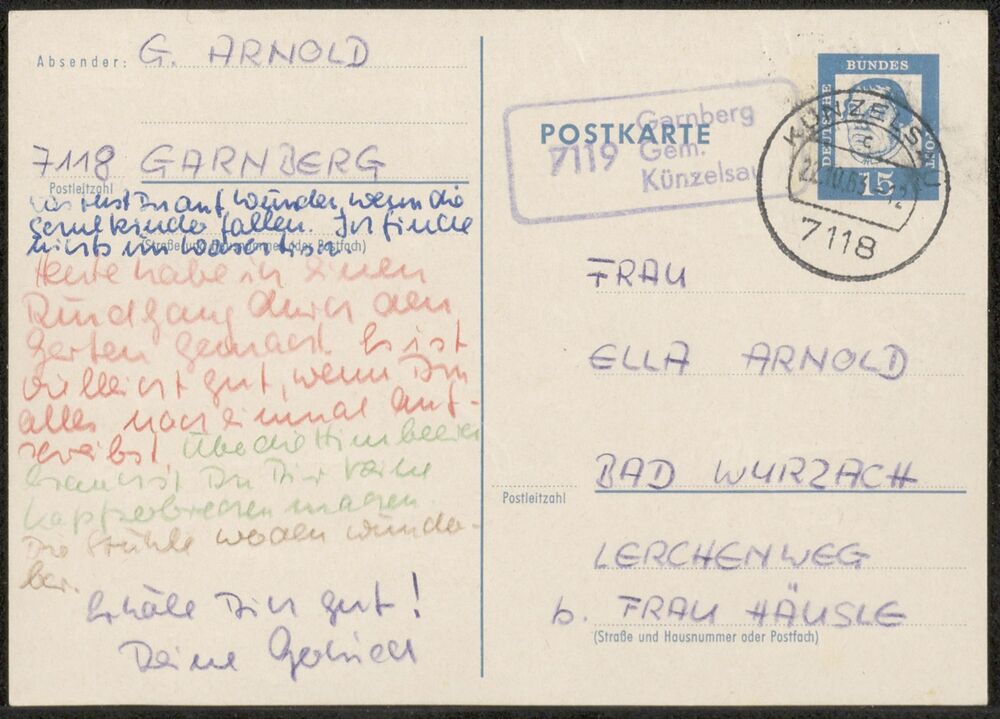 Absender: G. ARNOLD
7118 GARNBERG
Postleitzahl
Du auf wenden, wegen die
fallen. Ich finde
nichts
(Straße und Hausnummer oder Postfach)
Heute habe ich einen
Rundgang durch den
Garten gemacht. Es ist
vielleicht gut, wenn Du
alles noch einmal auf-
schreibst. Über die Himbeeren
brauchst Du Dir keine
Kopfzerbrechen machen.
Die Stühle werden wunder-
bar.
Erhole Dich gut!
Deine
POSTKARTE
7119
Garnberg
Gem.
Künzelsau
DEUTSCHE
BUNDES
POST
15
KÜNZELSAU
22.10.63
7118
FRAU
ELLA ARNOLD
BAD WURZACH
Postleitzahl
LERCHENWEG
b. FRAU HÄUSLE
(Straße und Hausnummer oder Postfach)